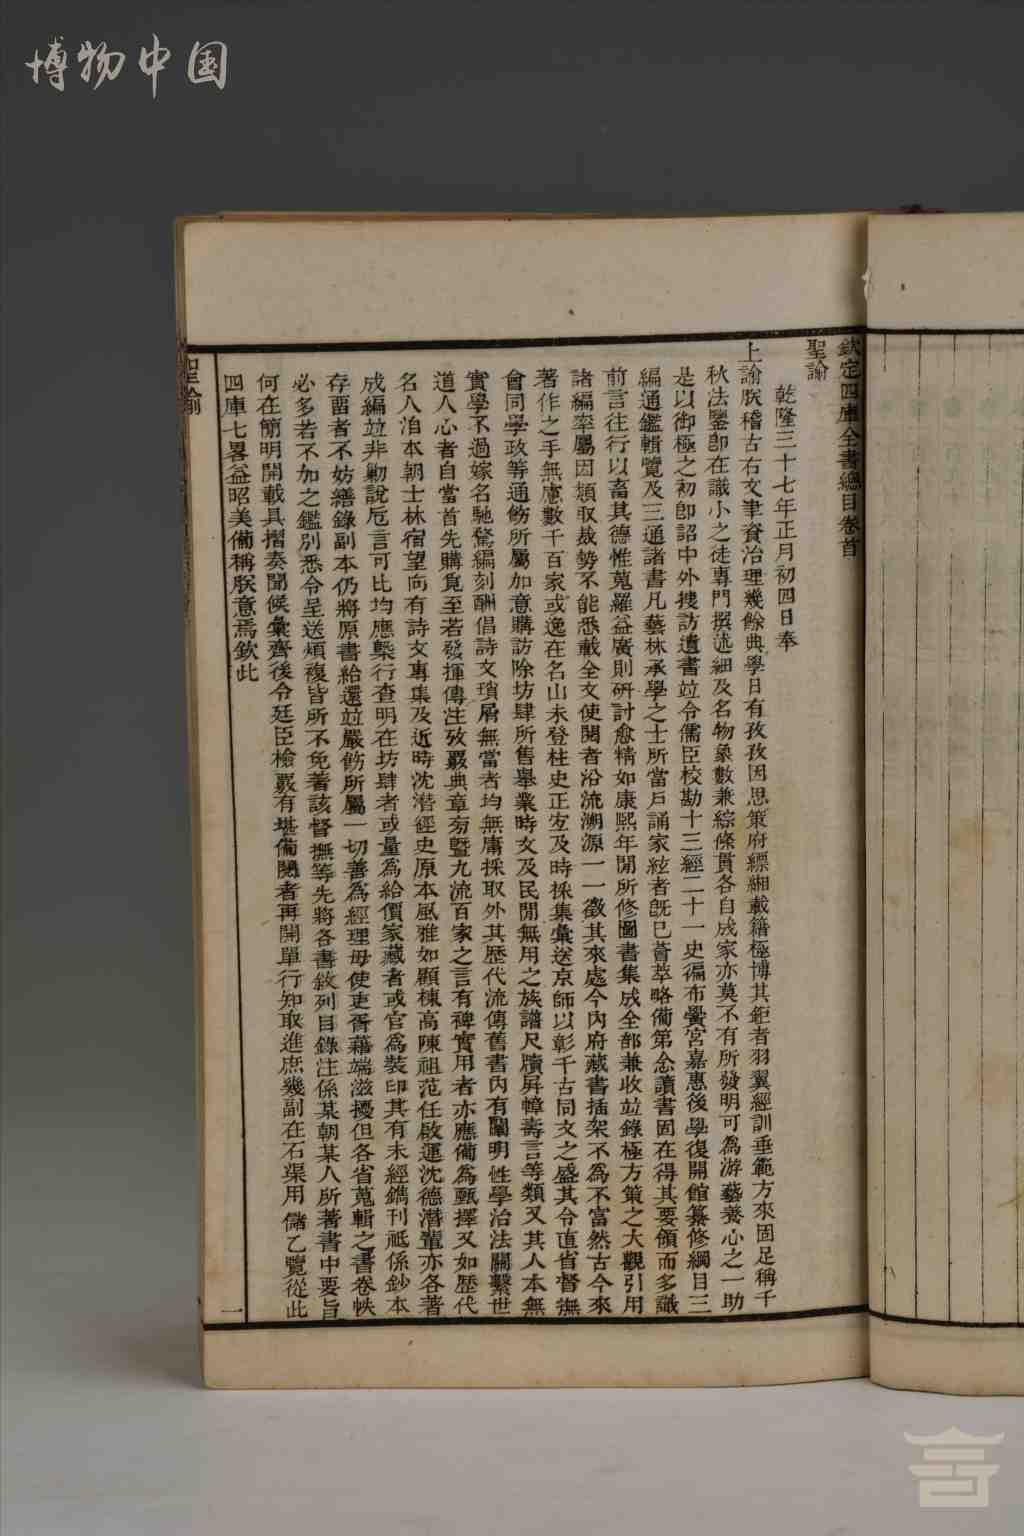 博物中国
欽定四庫全書總目卷首
聖諭
乾隆三十七年正月初四日奉
上諭朕稽古右文聿資治理幾餘典學日有孜孜因思策府縹緗載籍極博其鉅者羽翼經訓垂範方來固足稱千
秋法鑒卽在識小之徒專門撰述細及名物象數兼綜條貫各自成家亦莫不有所發明可為游藝養心之一助
是以御極之初卽詔中外搜訪遺書竝令儒臣校勘十三經二十一史徧布黌宮嘉惠後學復開館纂修綱目三
編通鑑輯覽及三通諸書凡藝林承學之士所當戶誦家絃者旣已薈萃略備第念讀書固在得其要領而多識
前言往行以畜其德惟蒐羅益廣則研討愈精如康熙年閒所修圖書集成全部兼收竝錄極方策之大觀引用
諸編率屬因類取裁勢不能悉載全文使閱者沿流溯源一一徵其來處今內府藏書插架不為不富然古今來
著作之手無慮數千百家或逸在名山未登柱史正宜及時採集彙送京師以彰千古同文之盛其令直省督撫
會同學政等通飭所屬加意購訪除坊肆所售舉業時文及民閒無用之族譜尺牘屏幛壽言等類又其人本無
實學不過嫁名馳騖編刻酬倡詩文瑣屑無當者均無庸採取外其歷代流傳舊書內有闡明性學治法關繫世
道人心者自當首先購覓至若發揮傳注攷覈典章旁暨九流百家之言有裨實用者亦應備為甄擇又如歷代
名人洎本朝士林宿望向有詩文專集及近時沈潛經史原本風雅如顧棟高陳祖范任啟運沈德潛輩亦各著
成編竝非勦說卮言可比均應槩行查明在坊肆者或量為給價家藏者或官為裝印其有未經鐫刊祗係鈔本
存畱者不妨繕錄副本仍將原書給還竝嚴飭所屬一切善為經理毋使吏胥藉端滋擾但各省蒐輯之書卷帙
必多若不加之鑑別悉令呈送煩複皆所不免著該督撫等先將各書敘列目錄注係某朝某人所著書中要旨
何在簡明開載具摺奏聞候彙齊後令廷臣檢覈有堪備閱者再開單行知取進庶幾副在石渠用儲乙覽從此
四庫七畧益昭美備稱朕意焉欽此
聖諭
一